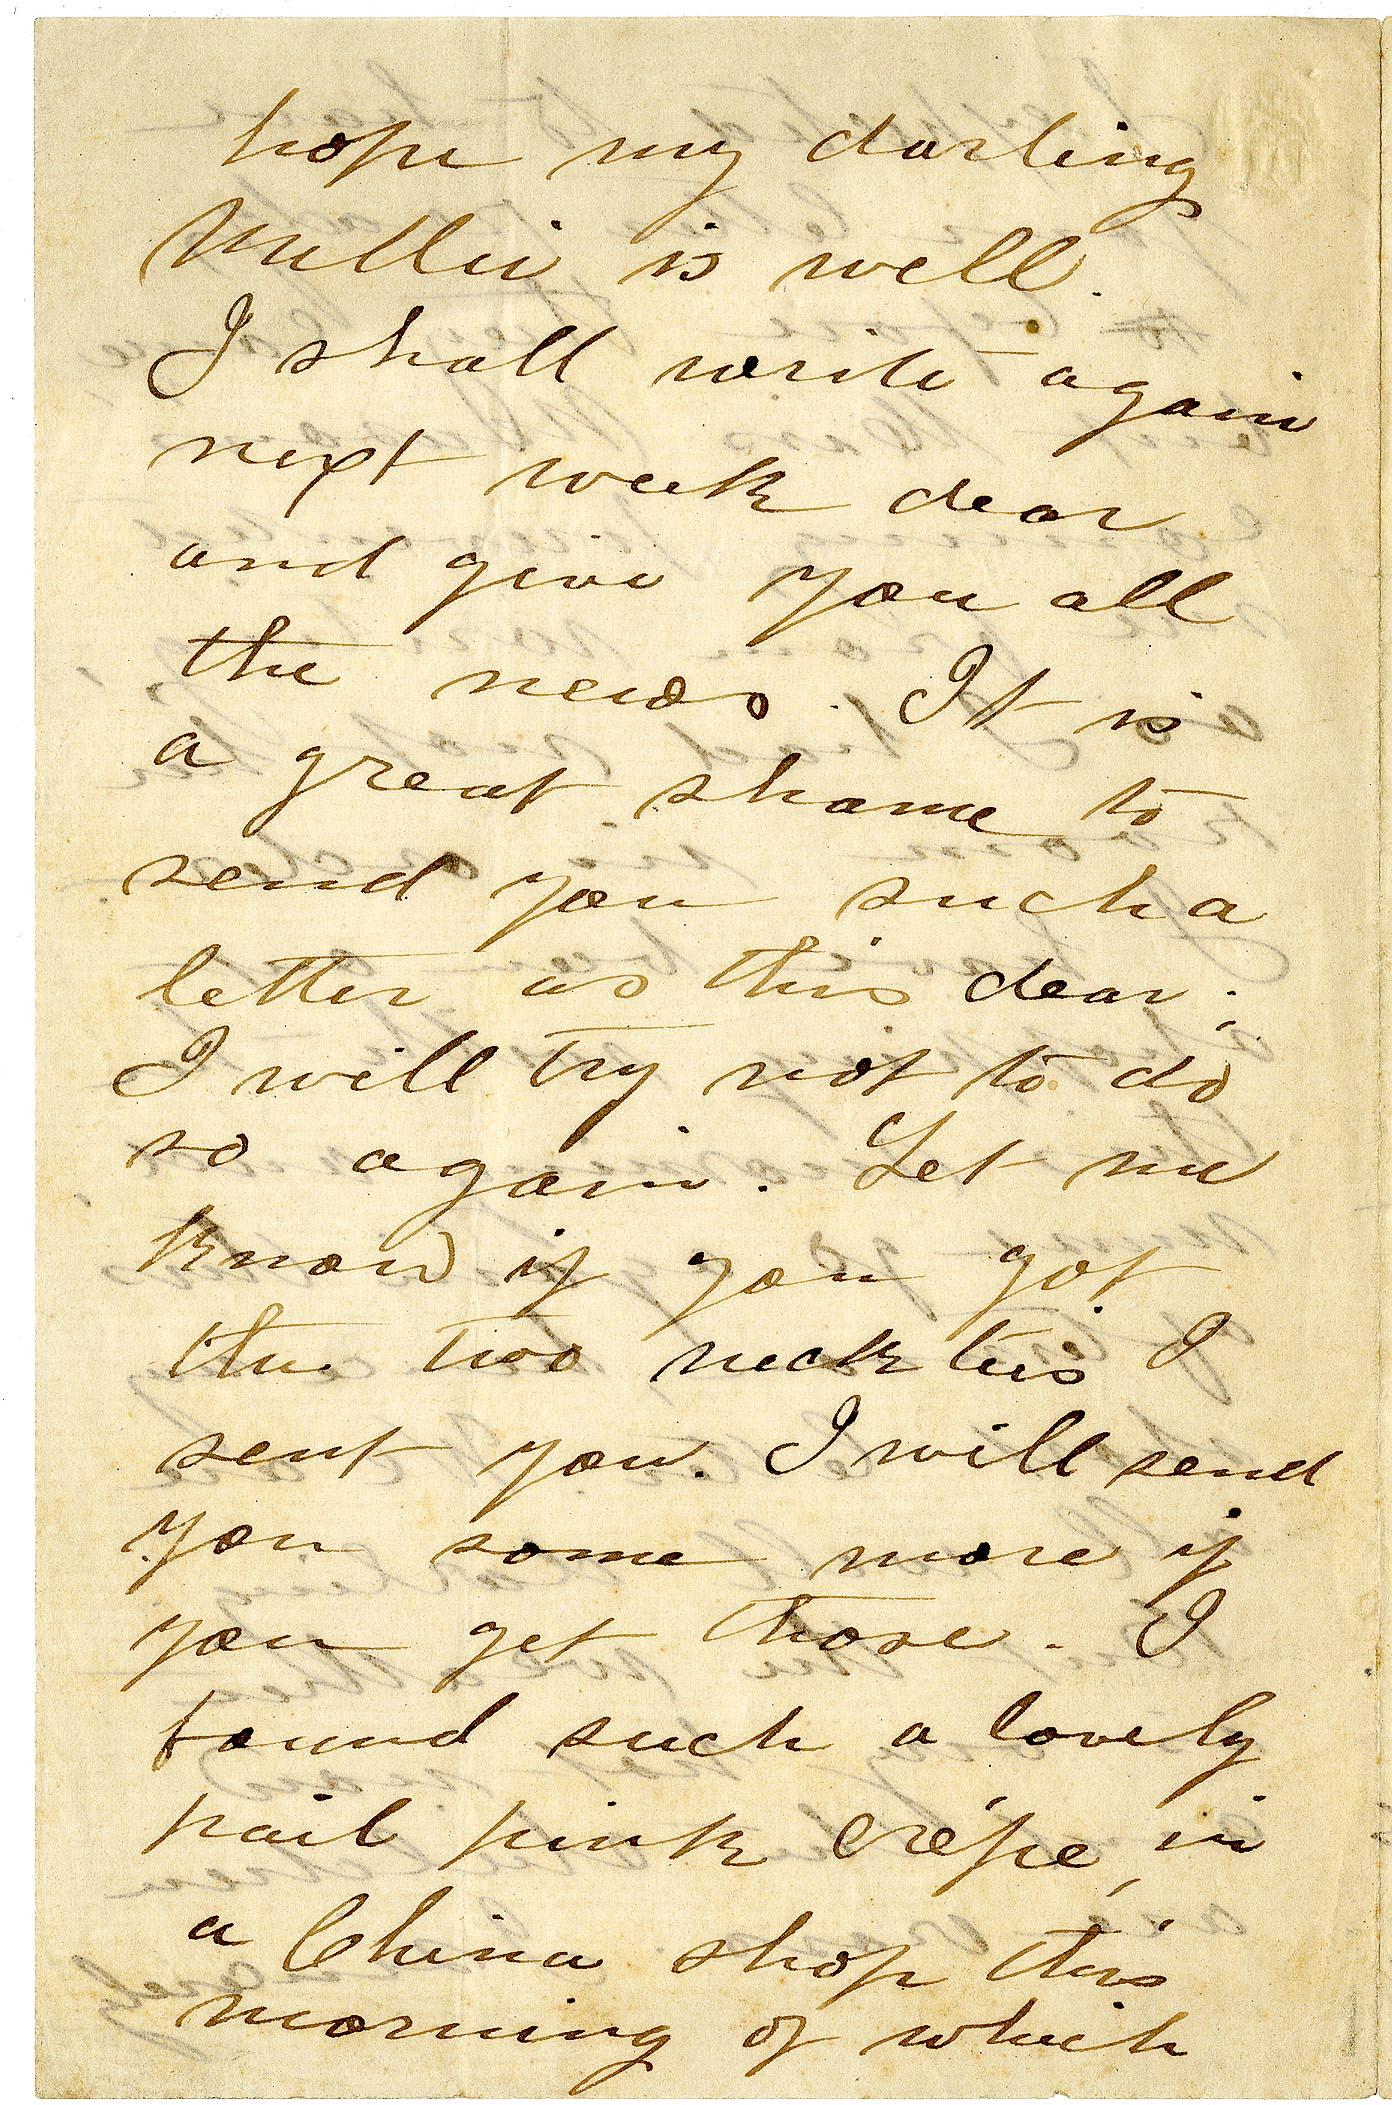 hope my darling
Nellie is well.
I shall write again
next week dear
and give you all
the news. It is
a great shame to
send you such a
letter as this dear;
I will try not to do
so again. Let me
know if you got
the two neckties I
sent you. I will send
you some more if
you get those. I
found such a lovely
pail pink crépe, in
a China shop this
morning of which